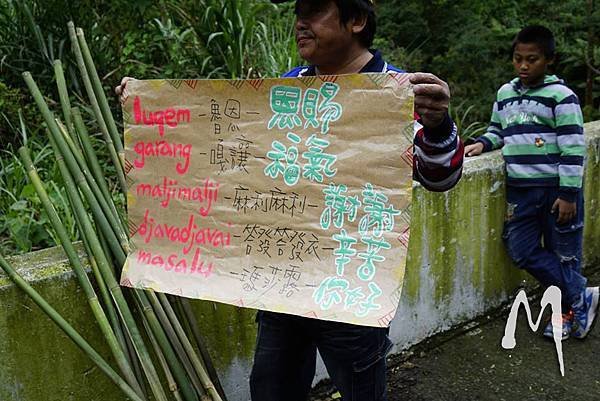 luqem —魯恩— 恩賜
garang —嘎讓— 福氣
maljimalji —麻利麻利— 謝謝
djavadjavai —答發答發衣— 辛苦
masalu —瑪莎露— 你好
M